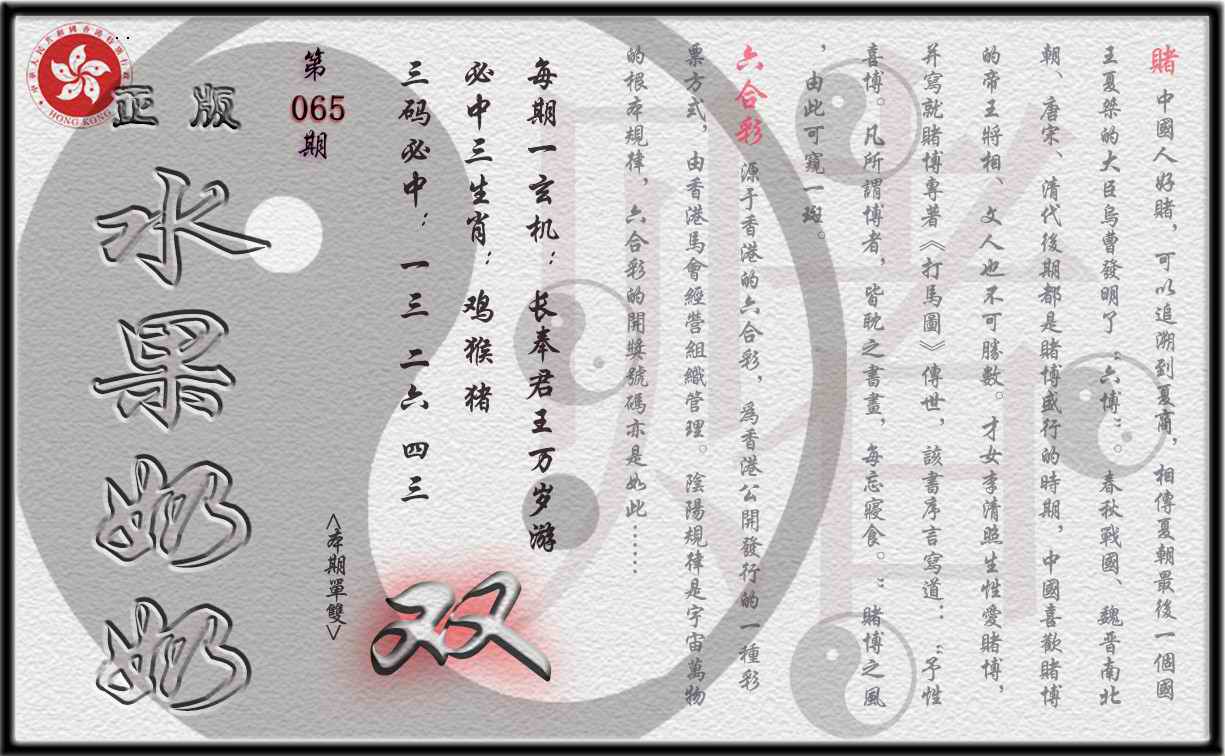 賭 中國人好賭，可以追溯到夏商，相傳夏朝最後一個國
王夏桀的大臣烏曹發明了“六博”。春秋戰國、魏晋南北
朝、唐宋、清代後期都是賭博盛行的時期，中國喜歡賭博
的帝王將相、文人也不可勝數。才女李清照生性愛賭博，
并寫就賭博專著《打馬圖》傳世，該書序言寫道：“予性
喜博。凡所謂博者，皆耽之書畫，每忘寢食。”賭博之風
，由此可窺一斑。
六合彩 源于香港的六合彩，爲香港公開發行的一種彩
票方式，由香港馬會經營組織管理。陰陽規律是宇宙萬物
的根本規律，六合彩的開獎號碼亦是如此……
每期一玄机：长奉君王万岁游
必中三生肖：鸡猴猪
三码必中：一三 二六 四三
双
<本期單雙>
第
065
期
正版
水果奶奶
中華人民共和國香港特別行政區
HONG KONG